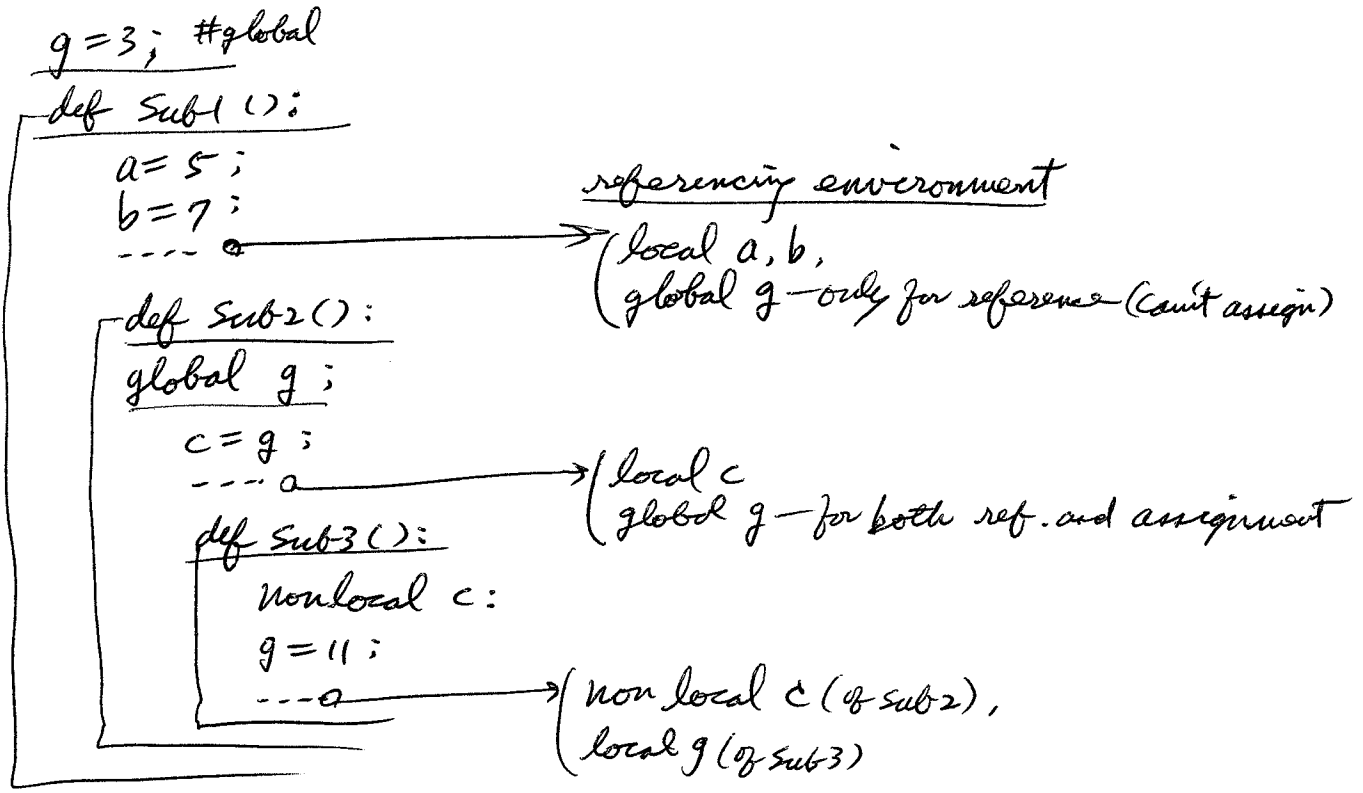 g=3; #global
def Sub1():
a=5;
b=7;
referencing environment
----
local a, b,
global g—only for reference (can't assign)
def Sub2():
global g;
c=g;
----
local c
global g—for both ref. and assignment
def Sub3():
nonlocal c:
g=11;
---
non local c (of Sub2),
local g (of Sub3)